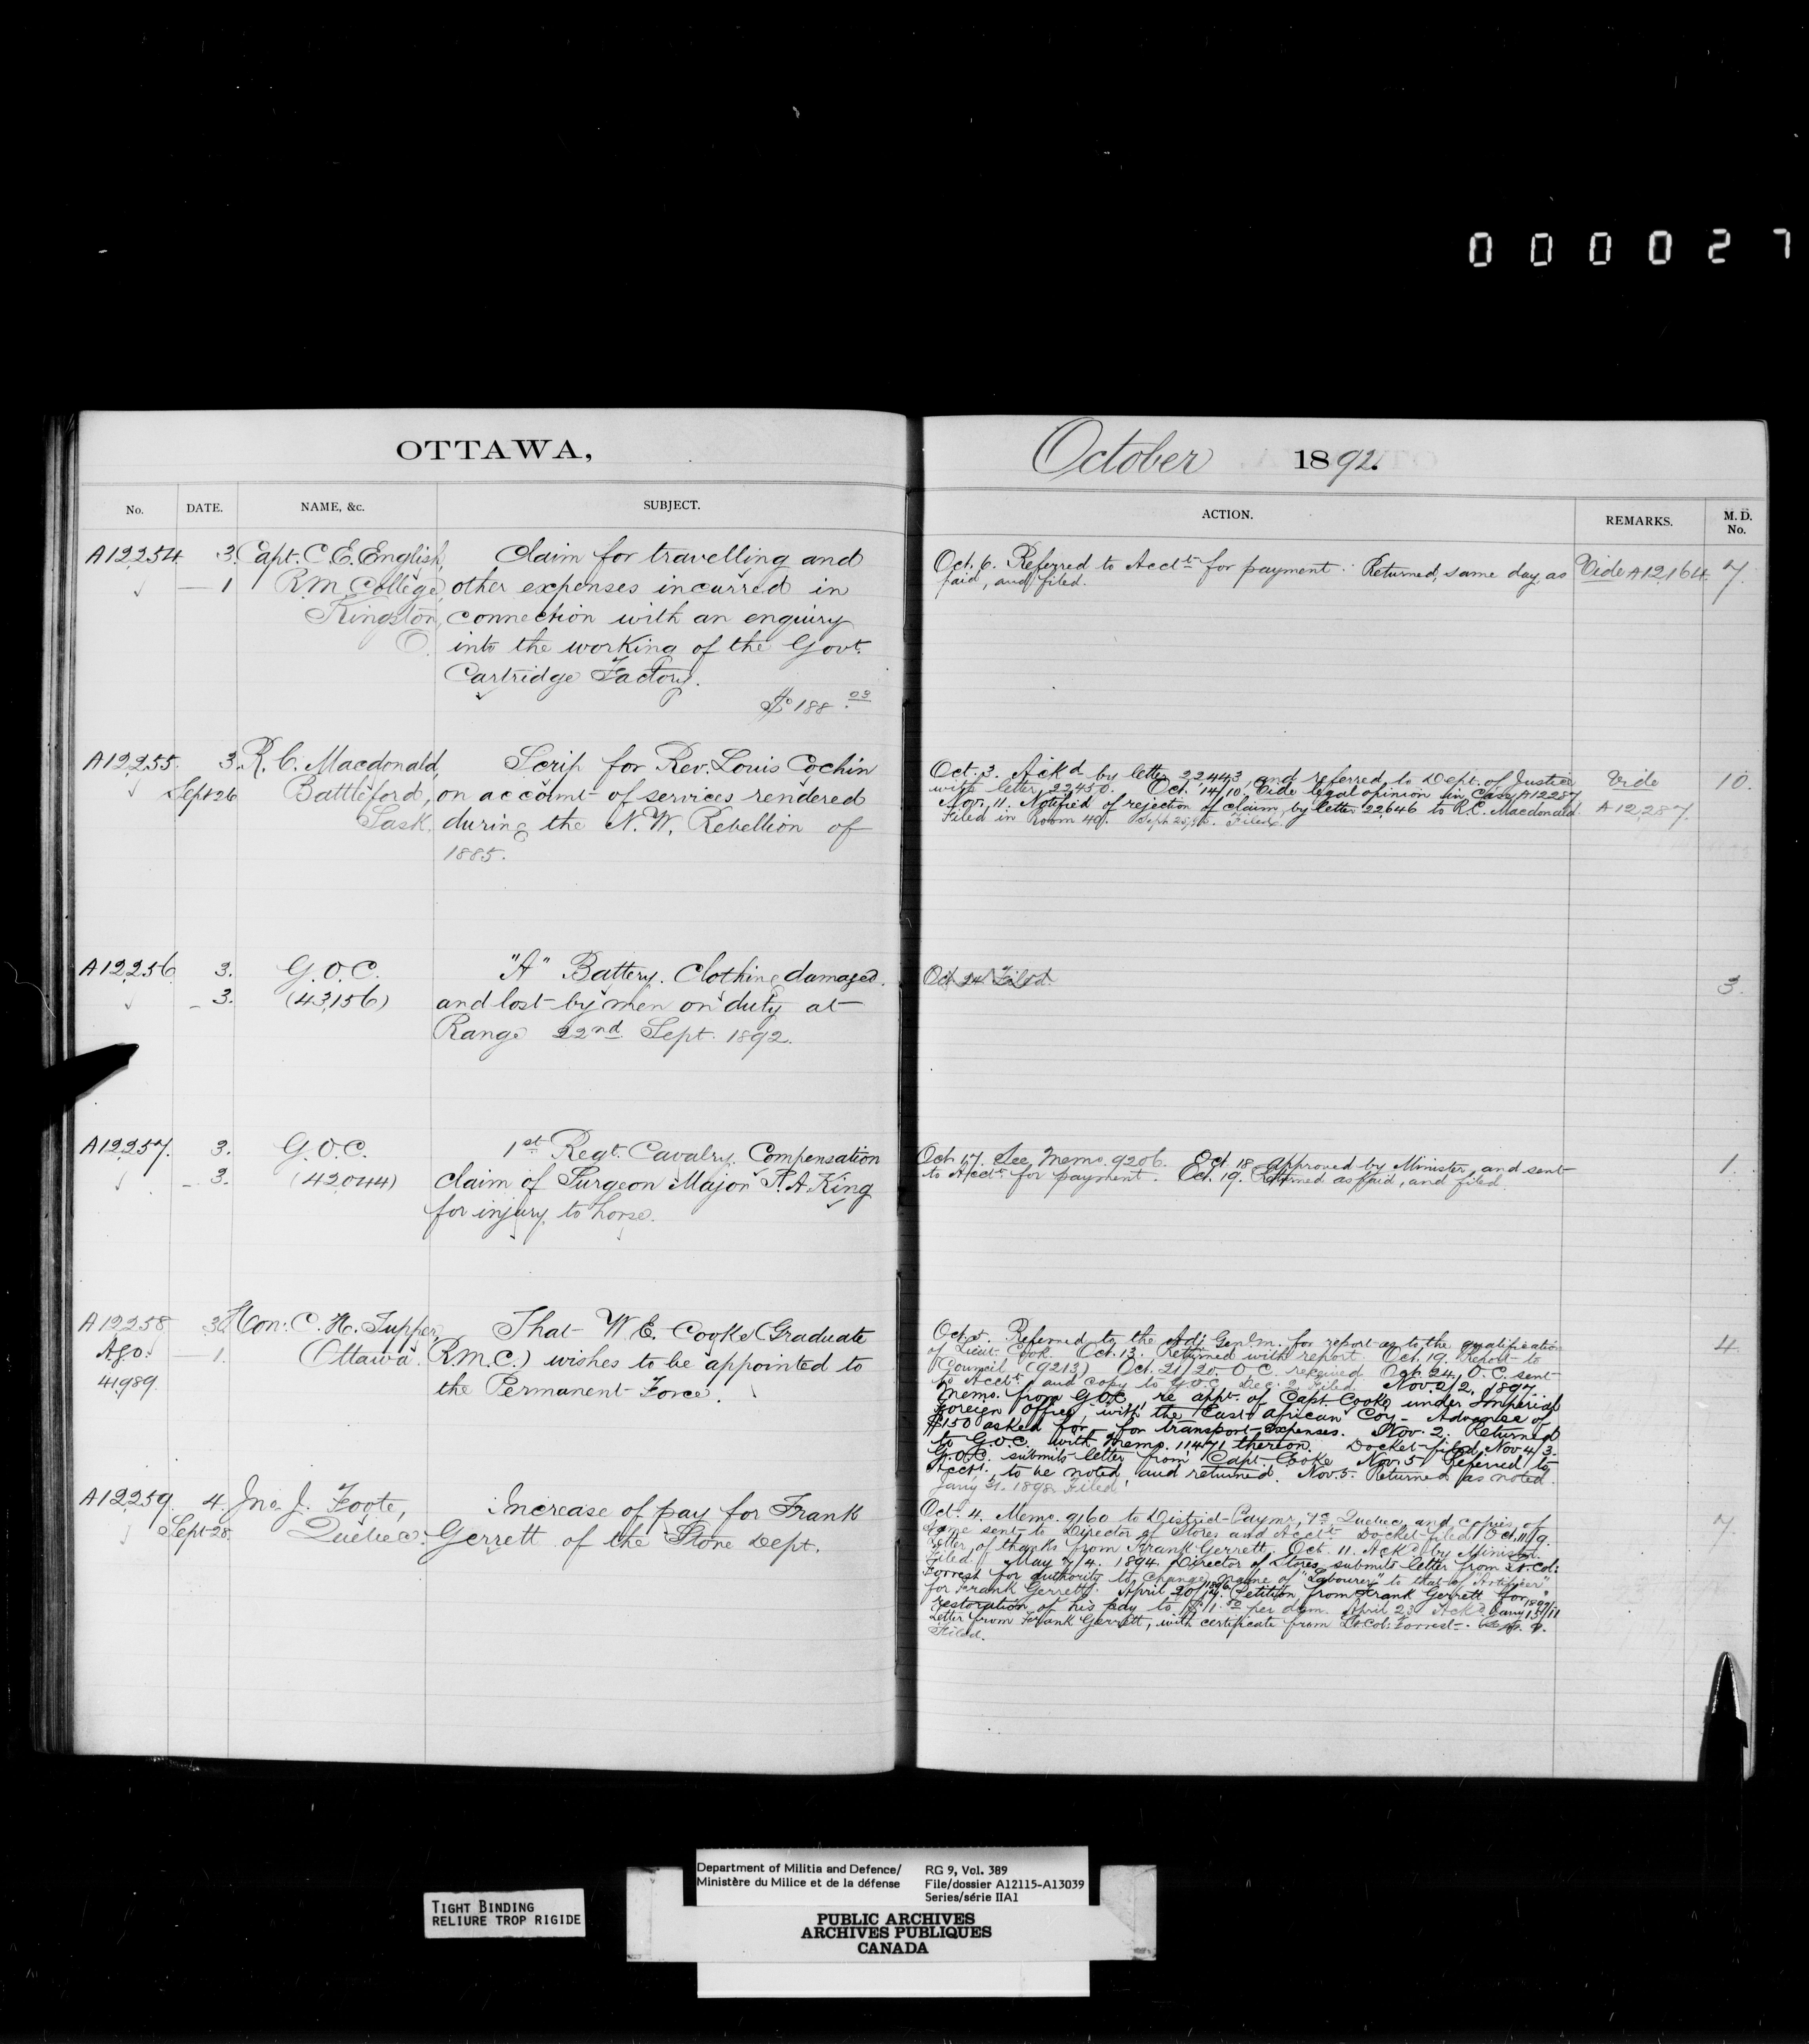 000027
OTTAWA,
October 1892.
No.
DATE.
NAME, &c.
SUBJECT.
ACTION.
REMARKS.
M. D. No.
A12254. 3. Capt. C. E. English, Claim for travelling and
— 1 R.M. College, other expenses incurred in
Kingston, connection with an enquiry
O. into the working of the Govt.
Cartridge Factory.
$188.03
Oct. 6. Referred to Acct. for payment. Returned, same day, as
paid, and filed.
Vide A12164 7.
A12255. 3. R. C. Macdonald, Scrip for Rev. Louis Cochin
Sept 26 Battleford, on account of services rendered
Sask. during the N. W. Rebellion of
1885.
Oct. 3. Ackd by letter 22443 and referred to Dept. of Justice
with letter 22450. Oct. 14/10. Vide legal opinion in Case A12287
Nov. 11. Notified of rejection of claim, by letter 22646 to R.C. Macdonald.
Filed in Room 49. Filed.
Vide
A12287.
10.
A12256 3. G.O.C. "A" Battery. Clothing damaged
— 3. (43156) and lost by men on duty at
Range 22nd Sept. 1892.
Oct 24 Filed.
3.
A12257. 3. G.O.C. 1st Regt. Cavalry. Compensation
— 3. (42044) claim of Surgeon Major R. A. King
for injury to horse.
Oct. 17. See Memo. 9206. Oct. 18 approved by Minister, and sent
to Acct. for payment. Oct. 19. Returned as paid, and filed.
1.
A12258 3. Hon. C. H. Tupper, That W. E. Cooke (Graduate
Ago. — 1. Ottawa. R.M.C.) wishes to be appointed to
41989. the Permanent Force.
Oct. 5. Referred to the Adj. Genl. for report as to the qualification
of Lieut. Cook. Oct. 13. Returned with report. Oct. 19. Report to
Council (9213) Oct. 21/20. O.C. received Oct. 24, O.C. sent
to Acct. and copy to G.O.C. Dec. 2. Filed. Nov. 2/2. 1897.
Memo. from G.O.C. re appt. of Capt. Cooke under Imperial
Foreign Office, with the East African Coy. — Advance of
$150 asked for, for transport expenses. Nov. 2. Returned
to G.O.C. with Memo. 11471 thereon. Docket filed, Nov 4/3.
G.O.C. submits letter from Capt. Cooke Nov. 5. Referred to
Acct., to be noted, and returned. Nov. 5. Returned as noted.
1898 Filed
4.
A12259. 4. Jno. J. Foote, Increase of pay for Frank
Sept 28. Quebec. Gerrett of the Store Dept.
Oct. 4. Memo. 9160 to District Paymr. 7, Quebec, and copies of
same sent to Director of Stores and Acct. Docket filed Oct. 11/9.
Letter of thanks from Frank Gerrett. Oct. 11. Ackd. by Minister.
Filed. May 7/4. 1894. Director of Stores submits letter from Lt. Col:
Forrest for authority to change name of "Labourer" to that of "Artificer"
for Frank Gerrett. April 20/14. 1896 Petition from Frank Gerrett for
restoration of his pay to per diem. April 23. Ackd.
Letter from Frank Gerrett, with certificate from Lt. Col: Forrest.
Filed.
7.
TIGHT BINDING
RELIURE TROP RIGIDE
Department of Militia and Defence/
Ministère du Milice et de la défense
RG 9, Vol. 389
File/dossier A12115-A13039
Series/série IIA1
PUBLIC ARCHIVES
ARCHIVES PUBLIQUES
CANADA